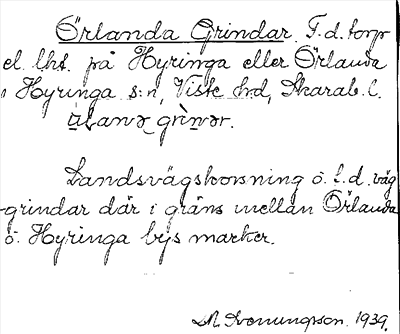 Örlanda Grindar. F. d. torp
el. lhs. på Hyringa eller Örlanda
i Hyringa s:n, Viste hd, Skarab. l.
Landsvägskorsning o. f. d. väg-
grindar där i gräns mellan Örlanda
o. Hyringa bys marker.
1939.